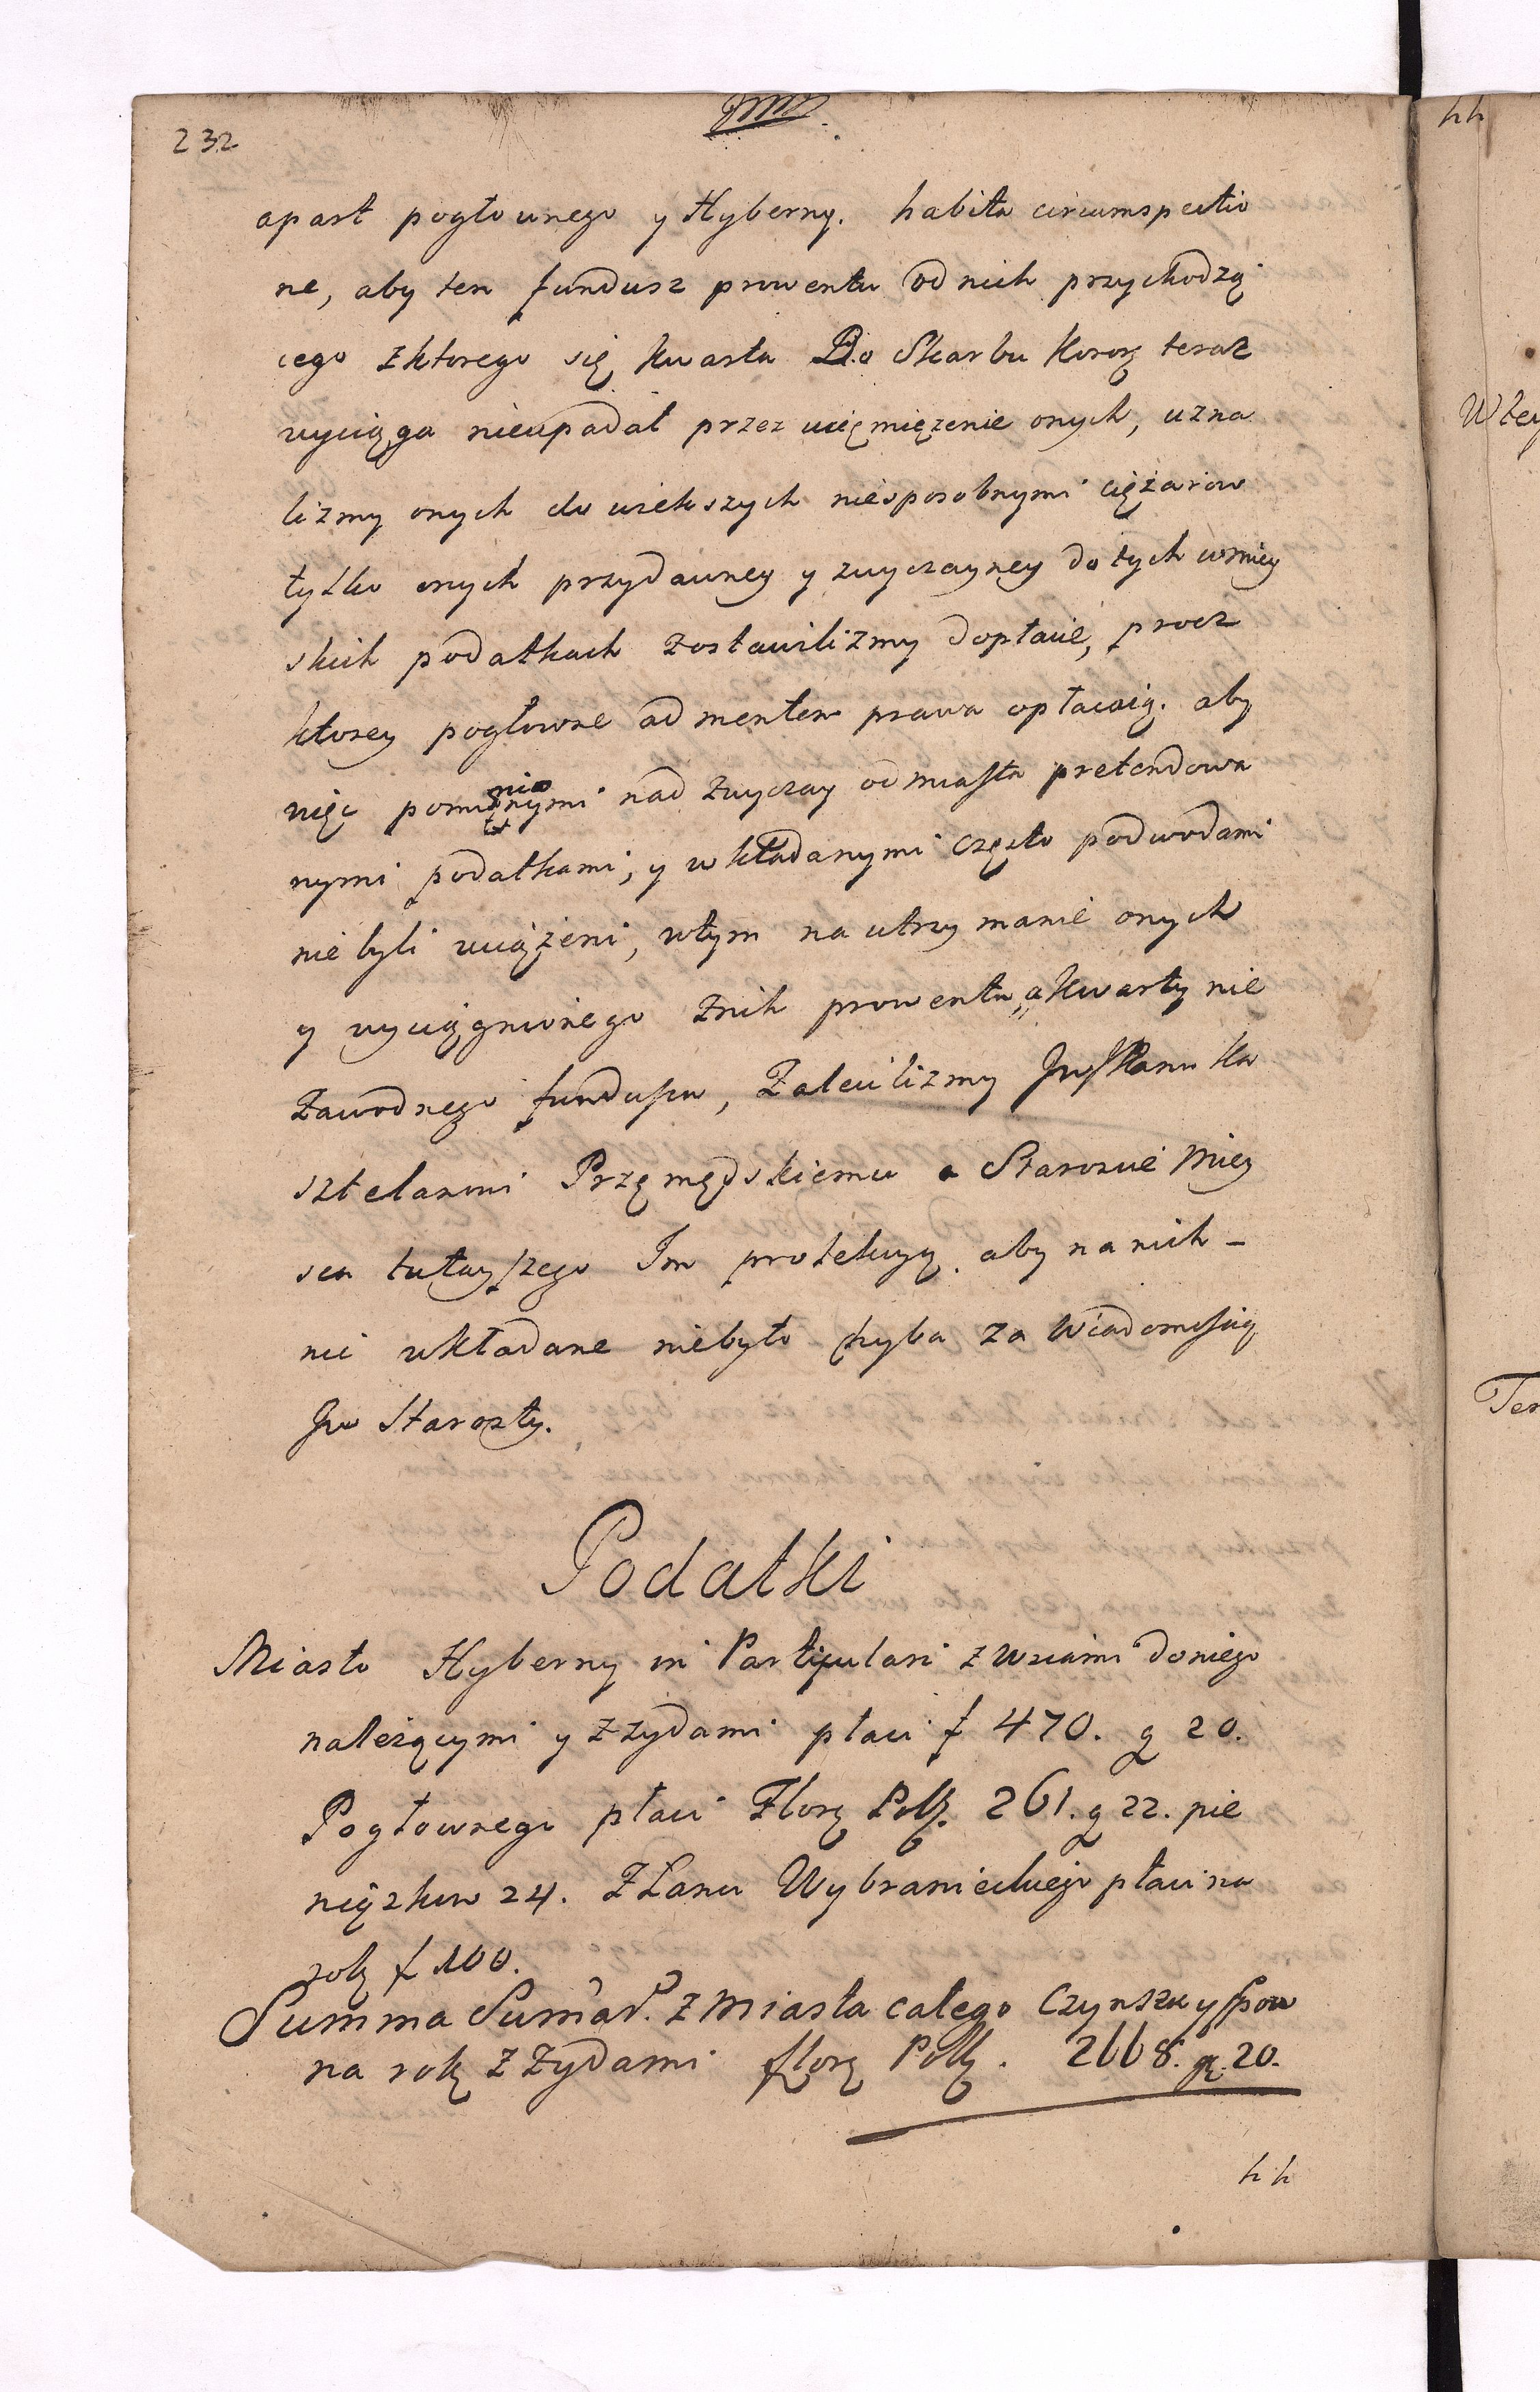 232
apart pogłownego y Hyberny. habita circumspectio
ne, aby ten fundusz prowentu od nich przychodzą
cego z ktorego się kwarta Do Skarbu Koroȝ teraz
wyciąga nieupadał przez uciemięzenie onych, uzna
lizmy onych do wiekszych niesposobnymi ciężarow
tylko onych przydawney y zwyczayney do tych
skich podatkach zostawilizmy dopłacie, procz
ktorey pogłowne ad mentem prawa opłacaią. aby
więc nad zwyczay od miasta pretendowa
nymi podatkami, y wkładanymi często podwodami
nie byli uciążeni, wtym na utrzymanie onych
y wyciągnionego znich prowentu, a kwarty nie
zawodnego funduszu, Zalecilizmy Jw Panu Ka
sztelanowi Przemęskiemu a Staroscie Miey
sca tuteyszego Im protekcyą. aby na nich -
nic wkładane niebyło chyba za Wiadomoscią
Jw Starosty.
Podatki
Miasto Hyberny in Particulari z wsiami do niego
należącymi y z zydami płaci f 470. g 20.
Pogłownego płaci Floȝ Polȝ. 261. g 22. pie
niązkow 24. Z Łanu Wybranieckiego płaci na
rok f 100.
Summa Sumar. z Miasta całego Czynszu y
na rok z zydami floȝ Polȝ. 2668. gr. 20.
hh
hh
Wtey
Ter